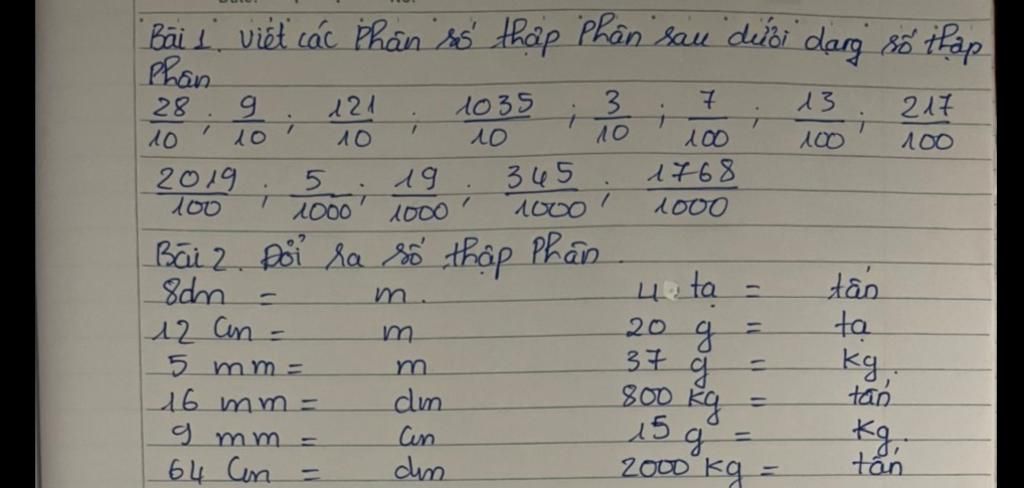 Bài 1. Viết các Phân số thập Phân sau dưới dạng số thập
Phân
28/10 ; 9/10 ; 121/10 ; 1035/10 ; 3/10 ; 7/100 ; 13/100 ; 217/100
2019/100 ; 5/1000 ; 19/1000 ; 345/1000 ; 1768/1000
Bài 2. Đổi ra số thập Phân.
8dm = m. 4 tạ = tấn
12 cm = m 20 g = tạ
5 mm = m 37 g = kg.
16 mm = dm 800 kg = tấn
9 mm = cm 15 g = kg.
64 cm = dm 2000 kg = tấn